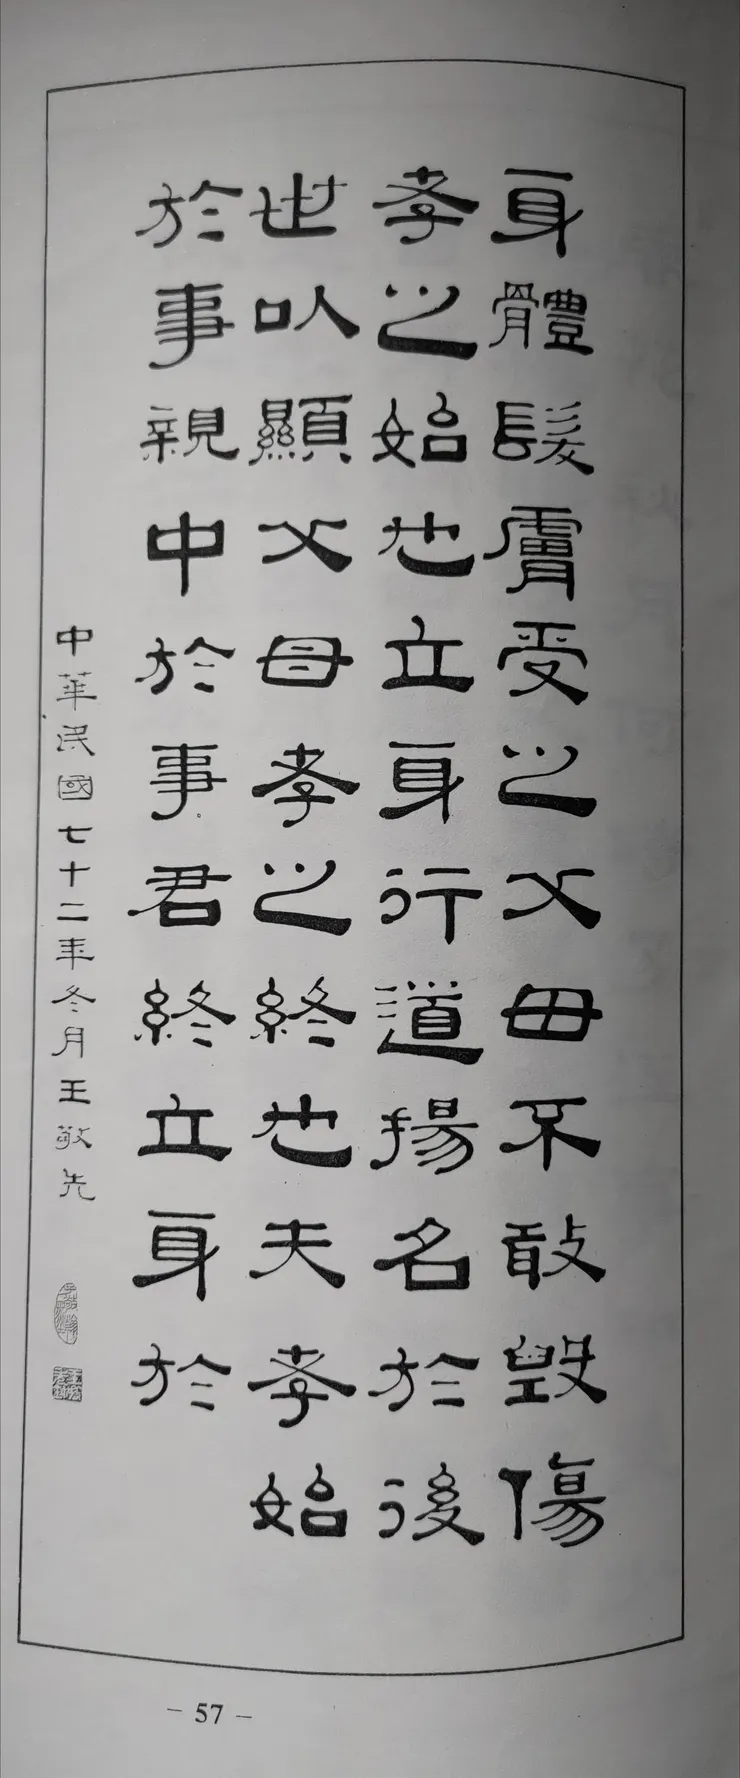 身體髮膚受之父母不敢毀傷
孝之始也立身行道揚名於後
世以顯父母孝之終也夫孝始
於事親中於事君終立身於
中華民國七十二年冬月王敬先
- 57 -